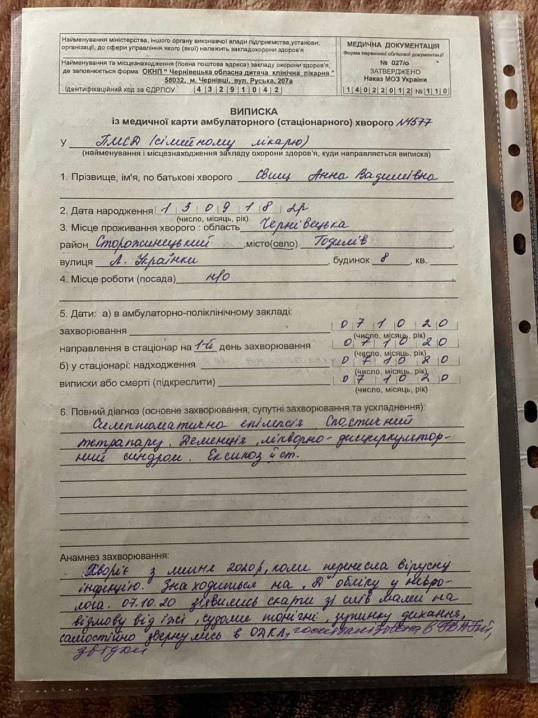 Найменування міністерства, іншого органу виконавчої влади підприємства, установи,
організації, до сфери управління якого (якої) належить заклад охорони здоров'я
Найменування та місцезнаходження (повна поштова адреса) закладу охорони здоров'я,
де заповнюється форма ОКНП " Чернівецька обласна дитяча клінічна лікарня "
58032, м. Чернівці, вул. Руська, 207а
Ідентифікаційний код за ЄДРПОУ 4 3 2 9 1 0 4 2
МЕДИЧНА ДОКУМЕНТАЦІЯ
Форма первинної облікової документації
№ 027/о
ЗАТВЕРДЖЕНО
Наказ МОЗ України
1 4 0 2 2 0 1 2 № 1 1 0
ВИПИСКА
із медичної карти амбулаторного (стаціонарного) хворого №4577
У ПМСД (сімейному лікарю)
(найменування і місцезнаходження закладу охорони здоров'я, куди направляється виписка)
1. Прізвище, ім'я, по батькові хворого Свищ Анна Вадимівна
2. Дата народження 1 3 0 9 1 8 2р
(число, місяць, рік)
3. Місце проживання хворого : область Чернівецька
район Сторожинецький , місто(село) Годилів
вулиця Л. Українки , будинок 8 , кв.
4. Місце роботи (посада) н/о
5. Дати: а) в амбулаторно-поліклінічному закладі:
захворювання 0 7 1 0 2 0
(число, місяць, рік)
направлення в стаціонар на 1-й день захворювання 0 7 1 0 2 0
(число, місяць, рік)
б) у стаціонарі: надходження 0 7 1 0 2 0
(число, місяць, рік)
виписки або смерті (підкреслити) 0 7 1 0 2 0
(число, місяць, рік)
6. Повний діагноз (основне захворювання, супутні захворювання та ускладнення):
Симптоматична епілепсія Спастичний
тетрапарез. Деменція, лікворно-дисциркулятор-
ний синдром. Ексикоз II ст.
Анамнез захворювання:
Хворіє з липня 2020р, коли перенесла вірусну
інфекцію. Знаходиться на "Д" обліку у невро-
лога. 07.10.20 з'явились скарги зі слів мами на
відмову від їжі, судоми тонічні, зупинку дихання,
самостійно звернулись в ОДКЛ, госпіталізована в